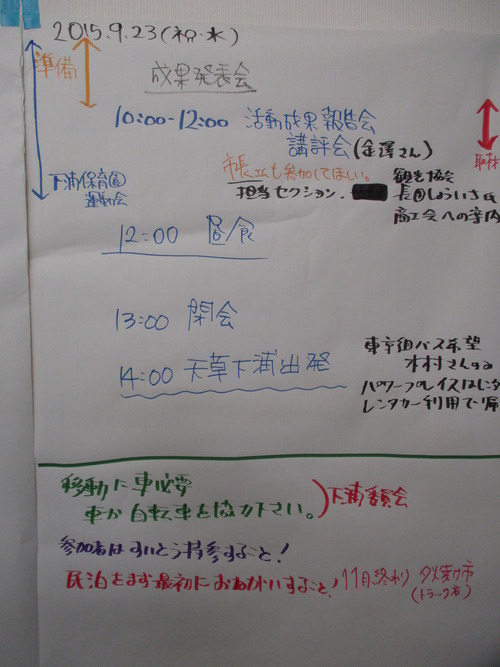 2015.9.23(祝・水)
準備
成果発表会
10:00-12:00 活動成果報告会
講評会(金澤さん)
取材
市長にも参加してほしい。
担当セクション.
観光協会
長田しょういち氏
商工会への案内
下浦保育園
運動会
12:00 昼食
13:00 閉会
14:00 天草下浦出発
東京組バス希望
木村さんのみ
パワープレイスはレンタ
レンタカー利用で帰
移動に車必要
車か自転車を協力下さい。
下浦委員会
参加者はすいとう持参すること!
民泊をまず最初におねがいすること!
11月終わり 夕焼け市
(トラック市)